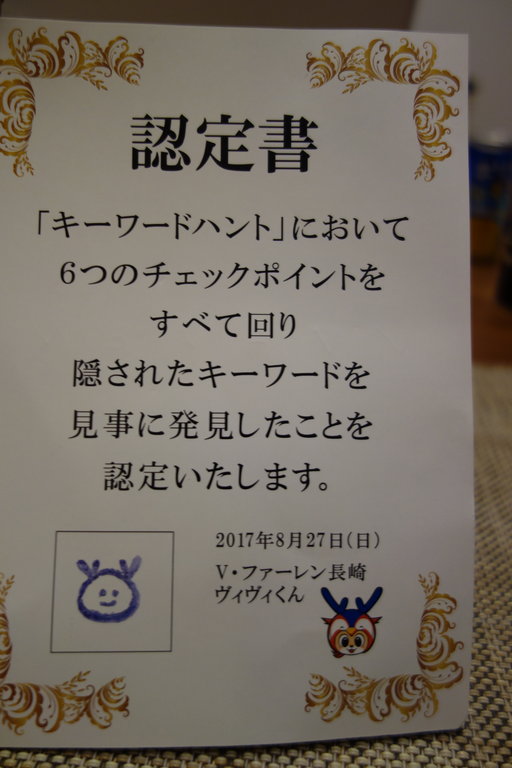 認定書
「キーワードハント」において
6つのチェックポイントを
すべて回り
隠されたキーワードを
見事に発見したことを
認定いたします。
2017年8月27日(日)
V・ファーレン長崎
ヴィヴィくん